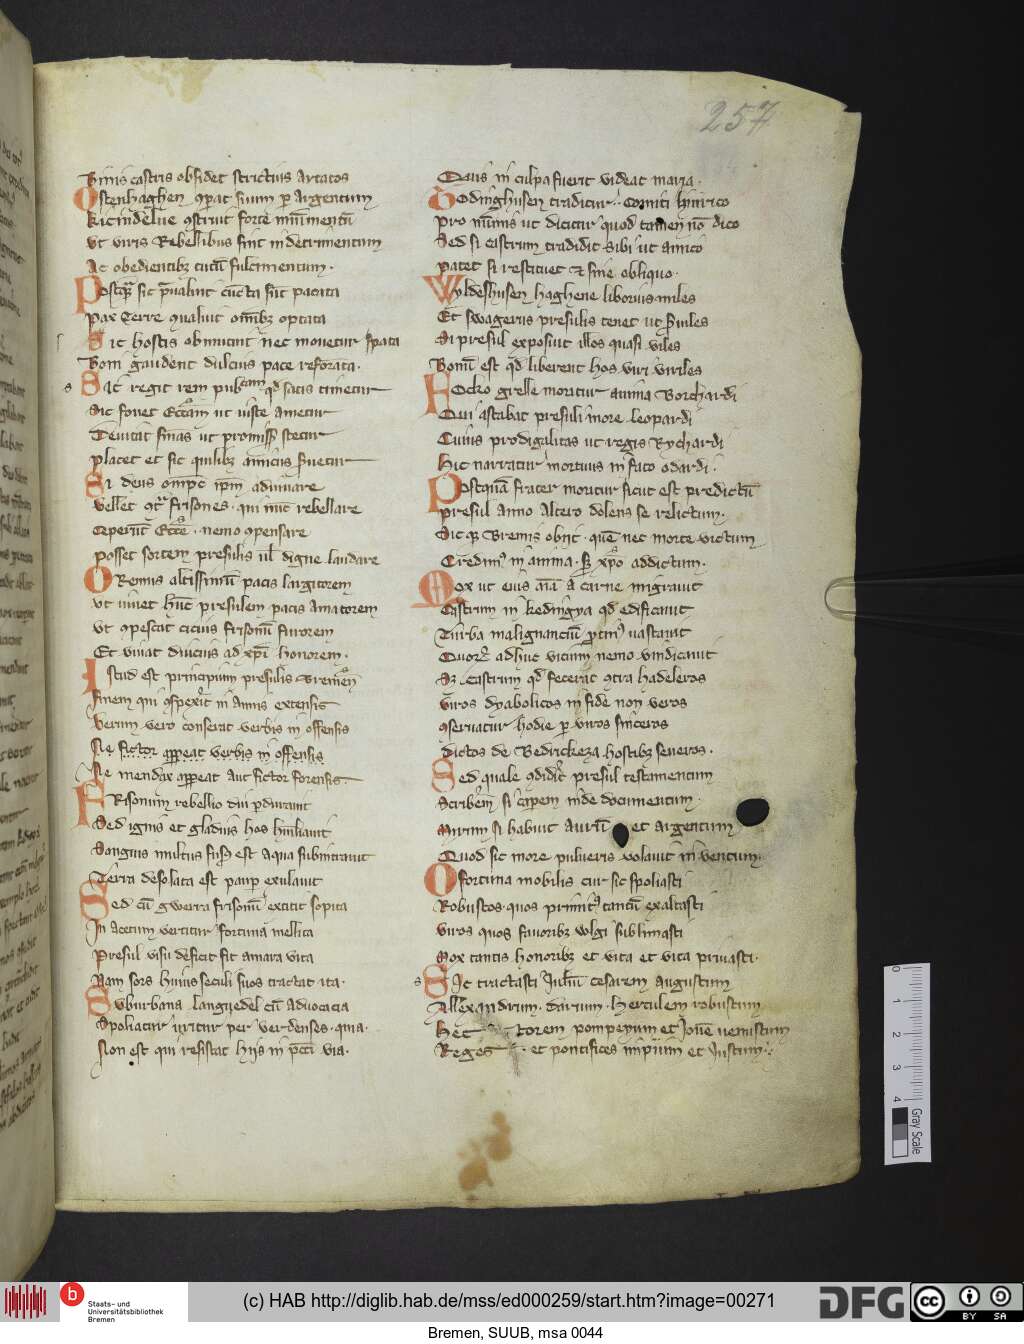 257
Binis castris obsidet strictius artatos
Ostenhaghen qparat suum p argentum
Kicindelue qstruit forte munimentu
Ut viris Rebellibus sint in detrimentum
Ac obedientibz tutu fulcimentum.
Postqua sic pualuit cucta sut pacata
Pax terre qualiuit omibz optata
Sic hostis obmutuit nec monetur spata
Boni gaudent dulcius pace reformata.
Sic regit rem publicam qd satis timetur
Sic fouet Ecctam ut iuste ametur
placet et sic quilibz amicus
Si deus ompc ipm adiuuare
vellet qtra frisones. qui nuc rebellare
Ceperut Eccte. nemo qpensare
posset sortem presulis ul digne laudare
Oremus altissimu pacis largitorem
Ut uiuet huc presulem pacis amatorem
Ut qpescat cicius frisonu furorem
Et viuat diucius ad xpi honorem.
Istud est principium presulis Bremen
finem qui qspexit in Annis extensis
Verum vero conserat verbis in offensis
Ne fictor appeat verbis in offensis
Ne mendax appeat aut fictor forensis
Frisonum rebellio diu pdurauit
Sed ignis et gladius hos huiliauit
Sanguis multus fusus est Aqua subintrauit
Terra desolata est paup exulauit
Sed cu gwerra frisonu extitit sopita
In acetum vertitur fortuna mellita
Presul visu deficit sit amara vita
Nam sors huius seculi suos tractat ita.
Suburbana langwedel cu Aduocacia
Spoliatur uritur per verdenses. quia.
Non est qui resistat hijs in pcti via.
Quis in culpa fuerit videat maria.
Sodinghusen traditur. Comiti hinrico
Pro numis ut dicitur quod tamen no dico
Sed si castrum tradidit sibi ut amico
patet si restituet & sine obliquo.
Wyldeshusen haghene liborius miles
Et swagerus presulis tenet ut suiles
Si presul exposuit illos quasi viles
Bonu est qd liberent hos viri viriles
Focko grelle moritur anima Borchardi
Qui astabat presuli more leopardi
Cuius prodigalitas ut regis Rychardi
Hic narratur mortuus in facto odardi.
Postqua frater moritur sicut est predictu
presul Anno Altero dolens se relictum.
Sicqz Bremis obijt. que nec morte victum
Credimus in anima. sz xpo addictum.
Mox ut eius aia a carne migrauit
Castrum in kedingya qd edificauit
Turba malignanciu ptinus vastauit
Quorum adhuc vicium nemo vindicauit
Sz castrum qd fecerat qtra hadeleros
Viros dyabolicos in fide non veros
qseruatur hodie p viros sinceros
dictos de Bedrickeza hostibz seueros.
Sed quale qdidit presul testamentum
Scribem si cipem inde documentum.
Mirum si habuit Auru et argentum
Quod sic more pulueris volauit in ventum.
O fortuna mobilis cur sic spoliasti
Robustos. quos primitus tantu exaltasti
Viros quos fauoribz wlgi sublimasti
Mox tantis honoribz et vita et vita priuasti.
Sic tractasti Juliu cesarem augustum
Allexandrum. darium. herculem robustum
Hec torem pompeyum et Joue uenustum
Reges. et pontifices impium et Justum.
0 1 2 3 4
Gray Scale
b
Staats- und
Universitätsbibliothek
Bremen
(c) HAB http://diglib.hab.de/mss/ed000259/start.htm?image=00271
DFG
cc
BY SA
Bremen, SUUB, msa 0044